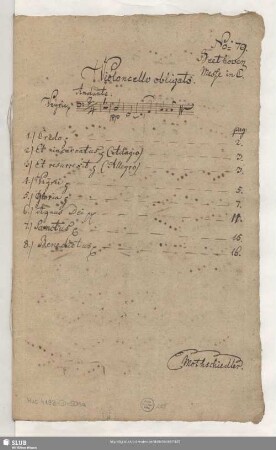 No: 79.
Beethoven
Messe in C.
Violoncello obligato.
Andante.
Kyrie
pag
1.) Credo 2.
2.) Et incarnatus (Adagio) 3.
3.) Et resurrexit (Allegro) 3.
4.) Kyrie 5.
5.) Gloria 7.
6.) Agnus Dei 11.
7.) Sanctus 15.
8.) Benedictus 16.
SLUB